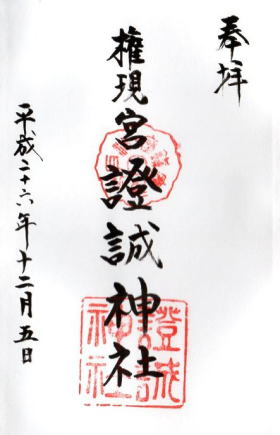 奉拝
権現宮證誠神社
平成二十六年十二月五日
證誠
神社